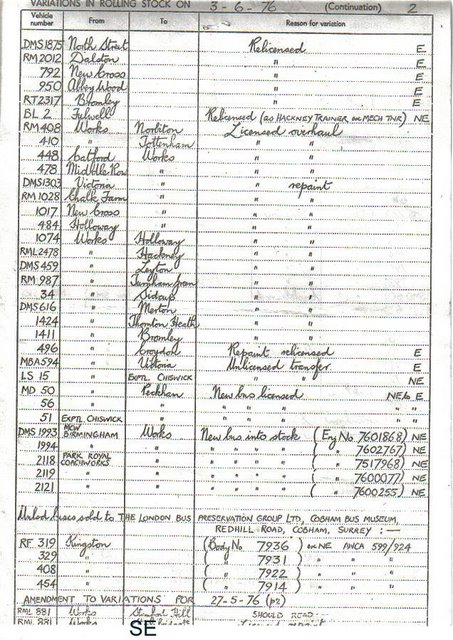 VARIATIONS IN ROLLING STOCK ON 3-6-76 (Continuation) 2
Vehicle number From To Reason for variation
DMS1875 North Street Relicensed E
RM2012 Dalston " E
792 New Cross " E
950 Abbey Wood " E
RT2317 Bromley " E
BL 2 Fulwell Relicensed (as HACKNEY TRAINER ex MECH TNR) NE
RM408 Works Norbiton Licensed overhaul
410 " Tottenham " "
448 Catford Works " "
478 Middle Row " " "
DMS1303 Victoria " " repaint
RM1028 Chalk Farm " " "
1017 New Cross " " "
484 Holloway " " "
1074 Works Holloway " "
RML2478 " Hackney " "
DMS459 " Leyton " "
RM 987 " Turnham Green " "
34 " Sidcup " "
DMS616 " Merton " "
1424 " Thornton Heath " "
1411 " Bromley " "
496 " Croydon Repaint relicensed E
MBA594 " Victoria Unlicensed transfer E
LS 15 " EXPTL CHISWICK " " NE
MD 50 " Peckham New bus licensed NE to E
56 " " " " " " "
51 EXPTL CHISWICK " " " " " "
DMS 1993 MCW BIRMINGHAM Works New bus into stock (Eng No 7601868) NE
1994 " " " " " " ( " 7602767) NE
2118 PARK ROYAL COACHWORKS " " " " " ( " 7517968) NE
2119 " " " " " " ( " 7600077) NE
2121 " " " " " " ( " 7600255) NE
buses sold to THE LONDON BUS PRESERVATION GROUP LTD, COBHAM BUS MUSEUM,
REDHILL ROAD, COBHAM, SURREY :—
RF 319 Kingston (Body No 7936) ex NE 599/924
329 " ( " 7931) " " "
408 " ( " 7922) " " "
454 " ( " 7914) " " "
AMENDMENT TO VARIATIONS FOR 27-5-76 (p2)
RML 881 Works Stamford Hill SHOULD READ
RML 881 Works
SE